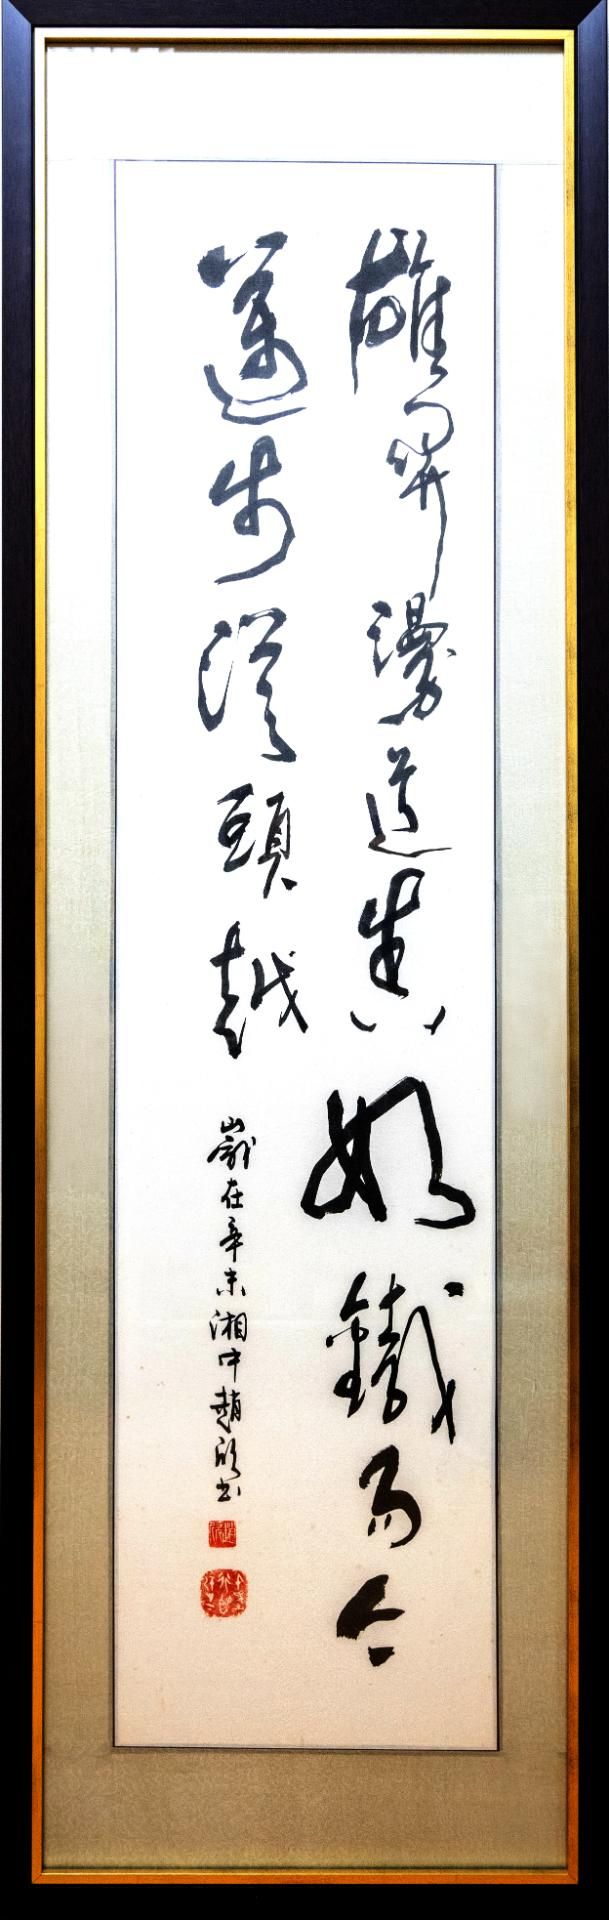 雄關漫道真如鐵而今
邁步從頭越
歲在辛未湘中趙欣書